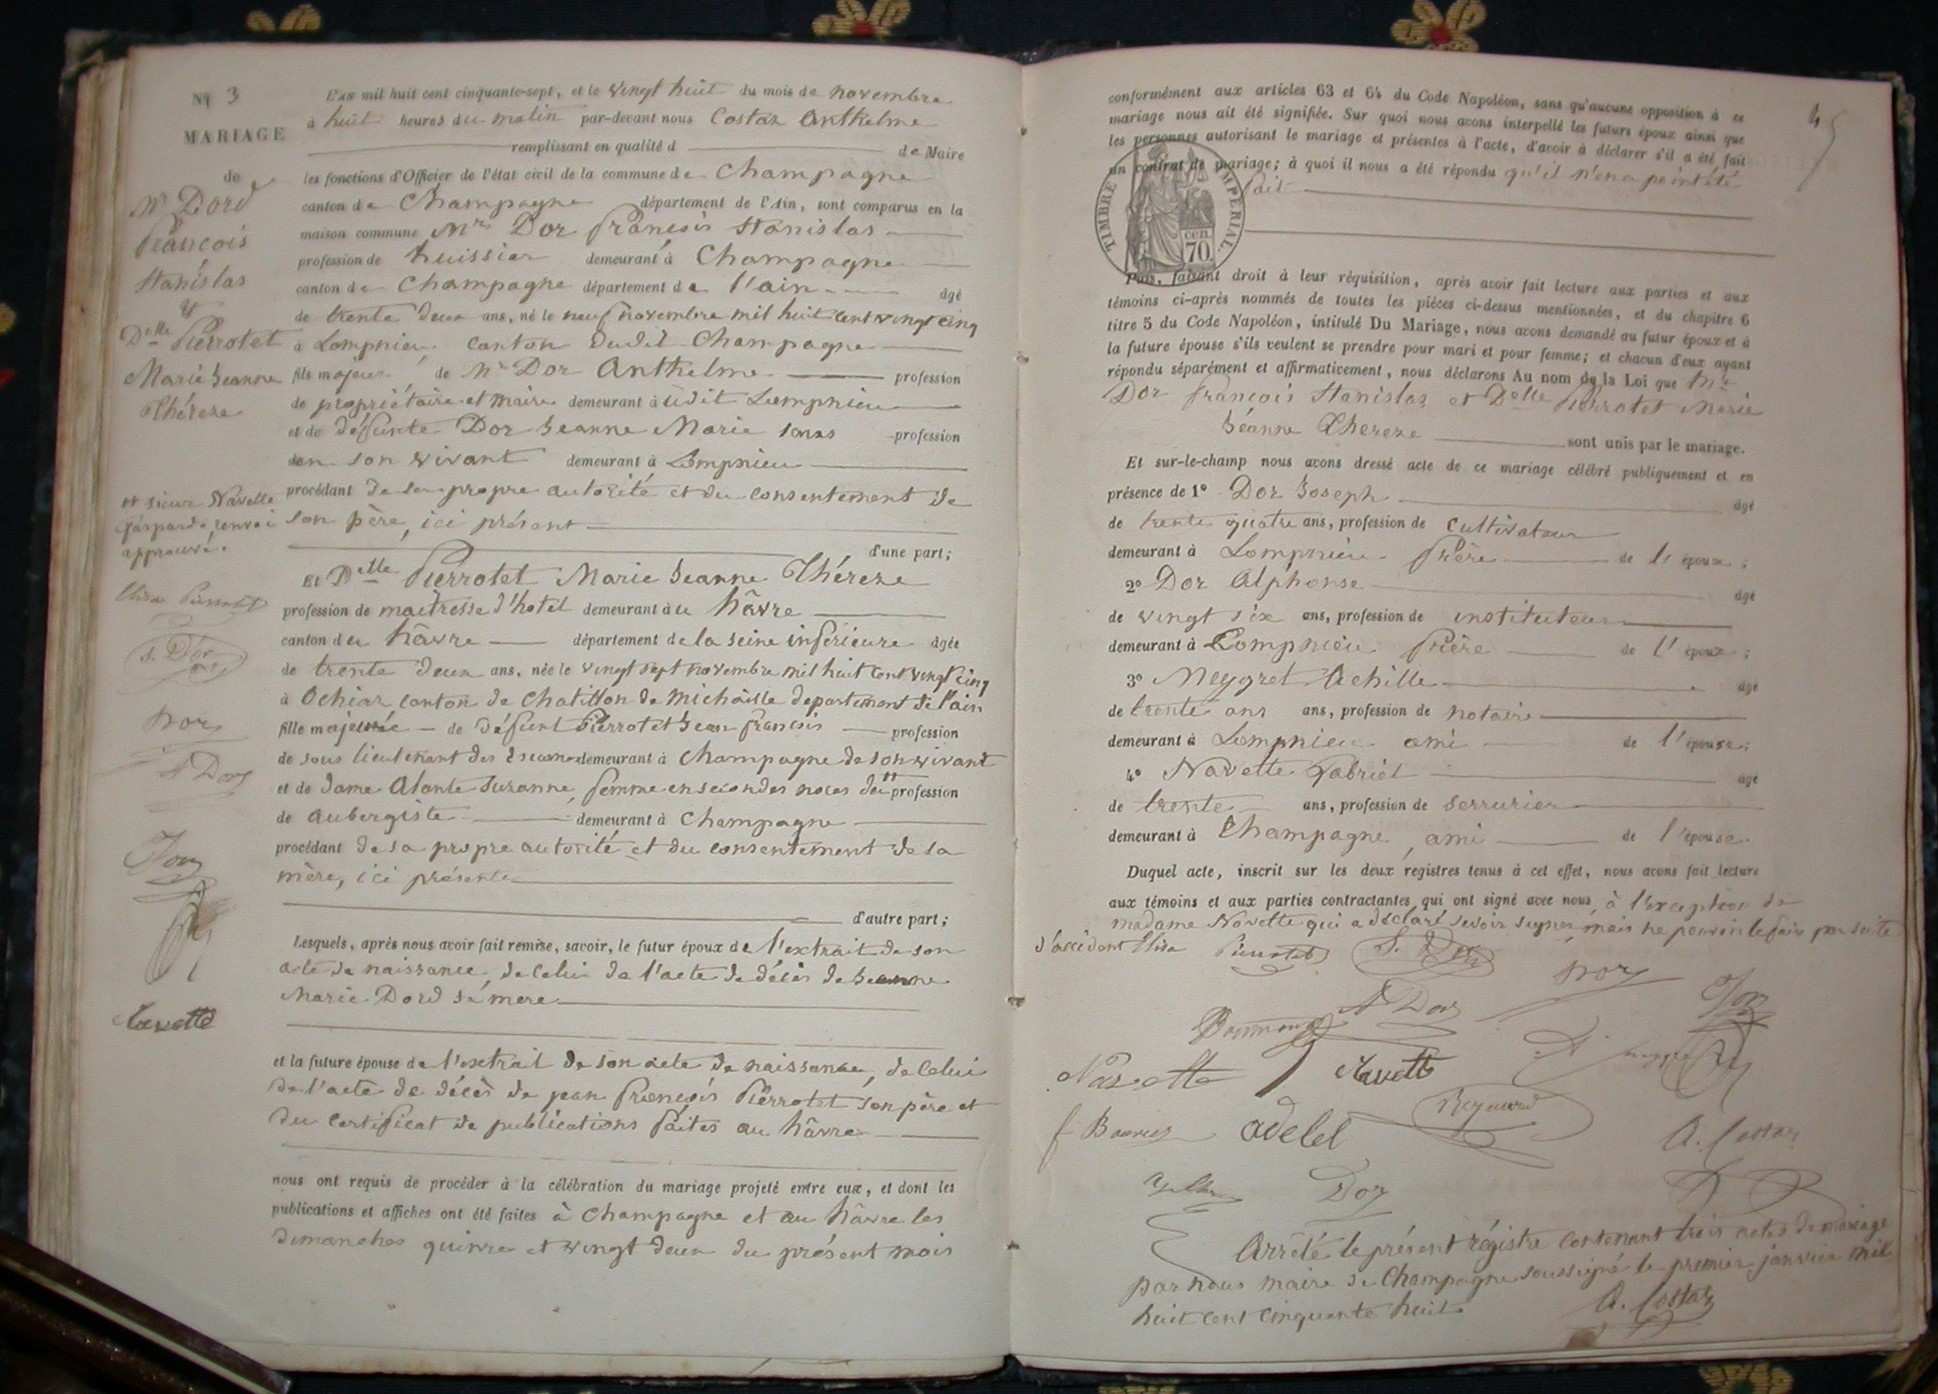 N° 3
MARIAGE
de
Mr Dord
François
Stanislas
et
Delle Pierrotet
Marie Jeanne
Thérèze
tt sieur Navette
Gaspard, renvoi
approuvé.
Elisa Pierrotet
S. Dor
Dor
A Dor
Dor
Navette
L'an mil huit cent cinquante-sept, et le vingt huit du mois de novembre
à huit heures du matin par-devant nous Costaz Anthelme
remplissant en qualité d de Maire
les fonctions d'Officier de l'état civil de la commune de Champagne
canton de Champagne département de l'Ain, sont comparus en la
maison commune Mr Dor François Stanislas
profession de huissier demeurant à Champagne
canton de Champagne département de l'ain agé
de trente deux ans, né le neuf novembre mil huit cent vingt cinq
à Lompnieu, canton dudit Champagne
fils majeur de Mr Dor Anthelme profession
de propriétaire et maire demeurant à udit Lompnieu
et de défunte Dor Jeanne Marie sans profession
en son vivant demeurant à Lompnieu
procédant de sa propre autorité et du consentement de
son père, ici présent
d'une part;
Et Delle Pierrotet Marie Jeanne Théreze
profession de maitresse d'hotel demeurant à u hâvre
canton du hâvre département de la seine inférieure agée
de trente deux ans, née le vingt sept novembre mil huit cent vingt cinq
à Ochiaz canton de Chatillon de Michaille departement de l'ain
fille majeure de défunt Pierrotet Jean François profession
de sous lieutenant des demeurant à Champagne de son vivant
et de dame Alante Suzanne, femme en secondes noces du tt profession
de aubergiste demeurant à Champagne
procédant de sa propre autorité et du consentement de sa
mère, ici présente
d'autre part;
Lesquels, après nous avoir fait remise, savoir, le futur époux de l'extrait de son
acte de naissance, de celui de l'acte de décès de Jeanne
Marie Dord sa mere
et la future épouse de l'extrait de son acte de naissance, de celui
de l'acte de décès de jean François Pierrotet son père et
du certificat de publications faites au hâvre
nous ont requis de procéder à la célébration du mariage projeté entre eux, et dont les
publications et affiches ont été faites à Champagne et au hâvre les
dimanches quinze et vingt deux du présent mois
45
conformément aux articles 63 et 64 du Code Napoléon, sans qu'aucune opposition à ce
mariage nous ait été signifiée. Sur quoi nous avons interpellé les futurs époux ainsi que
les personnes autorisant le mariage et présentes à l'acte, d'avoir à déclarer s'il a été fait
un contrat de mariage; à quoi il nous a été répondu qu'il n'en a point été
fait
TIMBRE IMPERIAL.
cen.
70.
Puis, faisant droit à leur réquisition, après avoir fait lecture aux parties et aux
témoins ci-après nommés de toutes les pièces ci-dessus mentionnées, et du chapitre 6
titre 5 du Code Napoléon, intitulé Du Mariage, nous avons demandé au futur époux et à
la future épouse s'ils veulent se prendre pour mari et pour femme; et chacun d'eux ayant
répondu séparément et affirmativement, nous déclarons Au nom de la Loi que Mr
Dor François Stanislas et Delle Pierrotet Marie
Jéanne Thereze sont unis par le mariage.
Et sur-le-champ nous avons dressé acte de ce mariage célébré publiquement et en
présence de 1° Dor Joseph agé
de trente quatre ans, profession de cultivateur
demeurant à Lompnieu frère de l'époux;
2° Dor Alphonse agé
de vingt six ans, profession de instituteur
demeurant à Lompnieu frère de l'époux;
3° Meygret Achille agé
de trente ans ans, profession de notaire
demeurant à Lompnieu ami de l'épouse;
4° Navette Gabriel agé
de trente ans, profession de serrurier
demeurant à Champagne, ami de l'épouse
Duquel acte, inscrit sur les deux registres tenus à cet effet, nous avons fait lecture
aux témoins et aux parties contractantes qui ont signé avec nous, à l'exception de
madame Navette qui a déclaré savoir signer, mais ne pouvoir le faire par suite
d'accident Elisa Pierrotet S. Dor Dor Dor
A Dor
Navette Navette
Reynaud
adelel A. Costaz
Dor
Arrêté le présent régistre contenant trois actes de mariage
par nous maire de Champagne soussigné le premier janvier mil
huit cent cinquante huit
A. Costaz